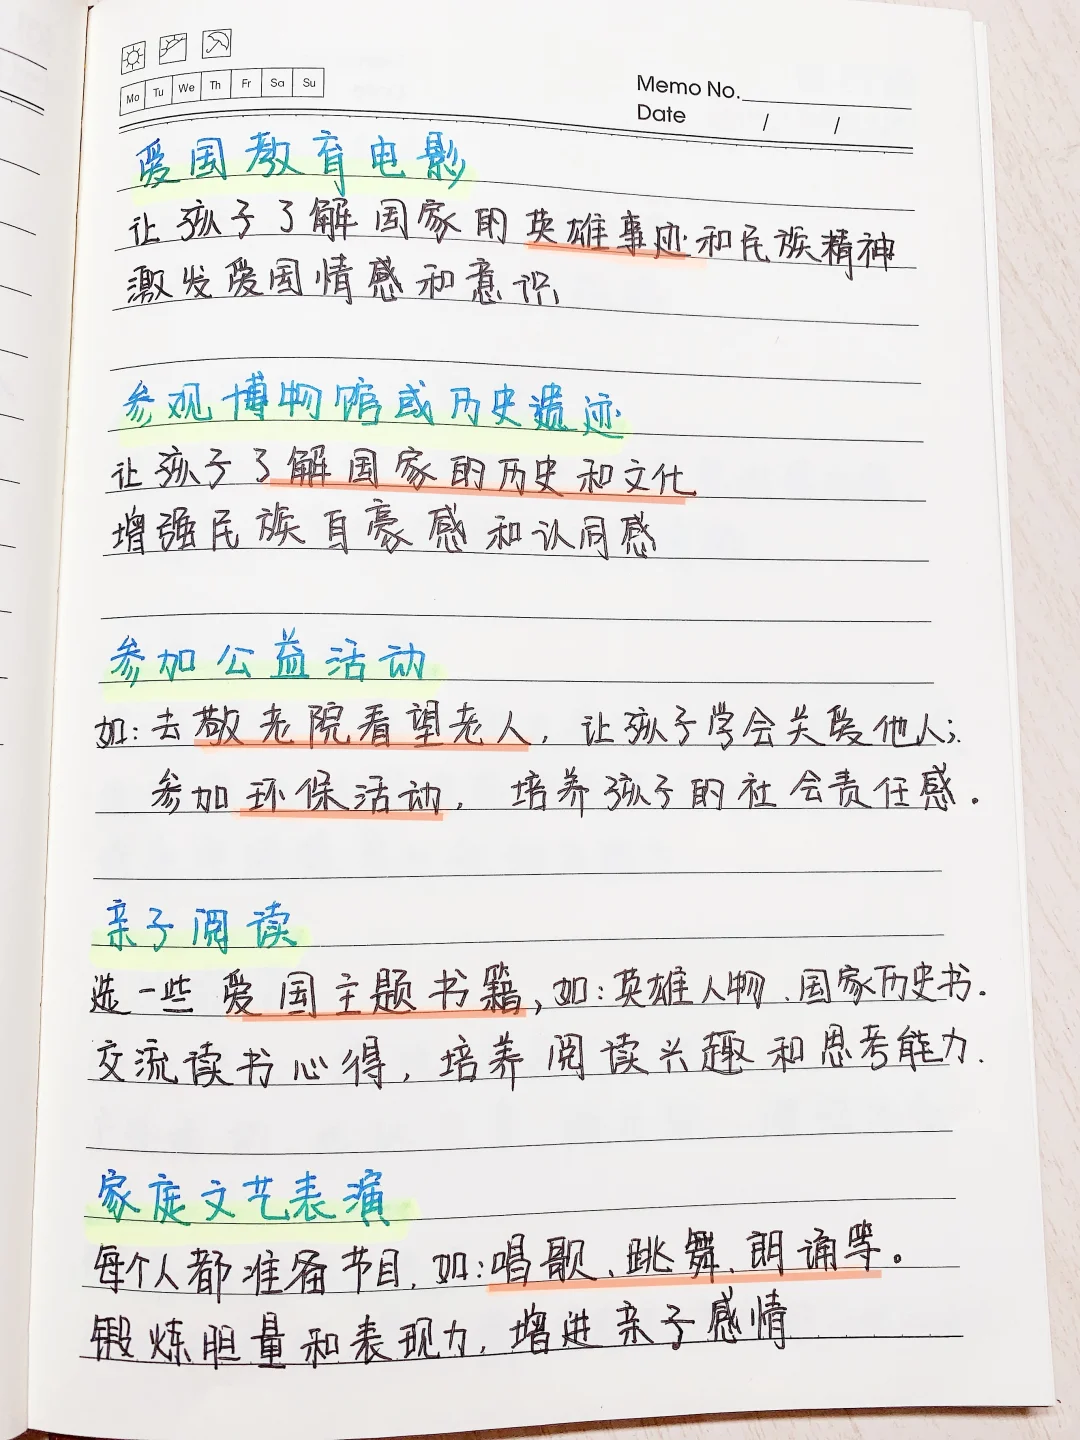 Mo Tu We Th Fr Sa Su
Memo No.
Date / /
爱国教育电影
让孩子了解国家的英雄事迹和民族精神
激发爱国情感和意识
参观博物馆或历史遗迹
让孩子了解国家的历史和文化
增强民族自豪感和认同感
参加公益活动
如:去敬老院看望老人,让孩子学会关爱他人;
参加环保活动,培养孩子的社会责任感.
亲子阅读
选一些爱国主题书籍,如:英雄人物、国家历史书.
交流读书心得,培养阅读兴趣和思考能力.
家庭文艺表演
每个人都准备节目,如:唱歌、跳舞、朗诵等。
锻炼胆量和表现力,增进亲子感情